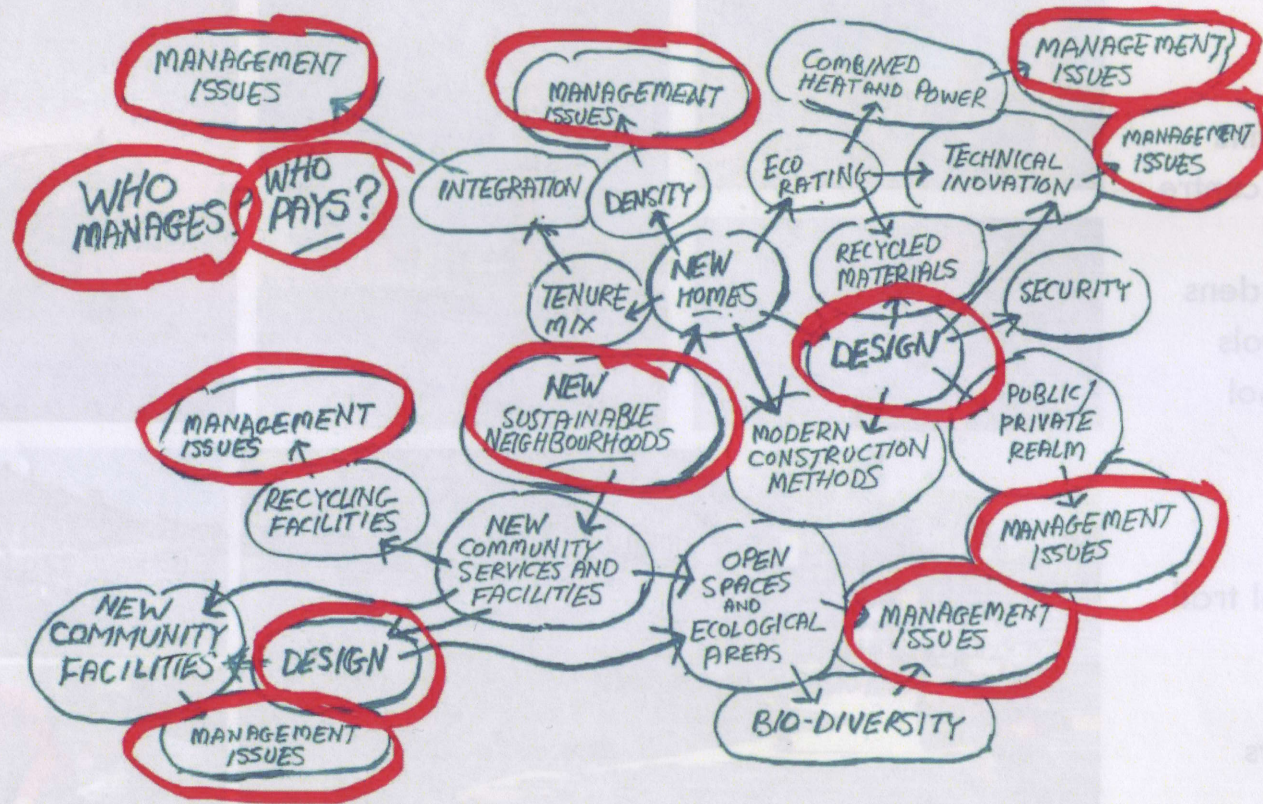 MANAGEMENT
ISSUES
MANAGEMENT
ISSUES
COMBINED
HEAT AND POWER
MANAGEMENT
ISSUES
WHO
MANAGES?
WHO
PAYS?
INTEGRATION
DENSITY
ECO
RATING
TECHNICAL
INOVATION
MANAGEMENT
ISSUES
TENURE
MIX
NEW
HOMES
RECYCLED
MATERIALS
SECURITY
DESIGN
MANAGEMENT
ISSUES
NEW
SUSTAINABLE
NEIGHBOURHOODS
MODERN
CONSTRUCTION
METHODS
PUBLIC/
PRIVATE
REALM
RECYCLING
FACILITIES
NEW
COMMUNITY
SERVICES AND
FACILITIES
OPEN
SPACES
AND
ECOLOGICAL
AREAS
MANAGEMENT
ISSUES
MANAGEMENT
ISSUES
NEW
COMMUNITY
FACILITIES
DESIGN
MANAGEMENT
ISSUES
BIO-DIVERSITY